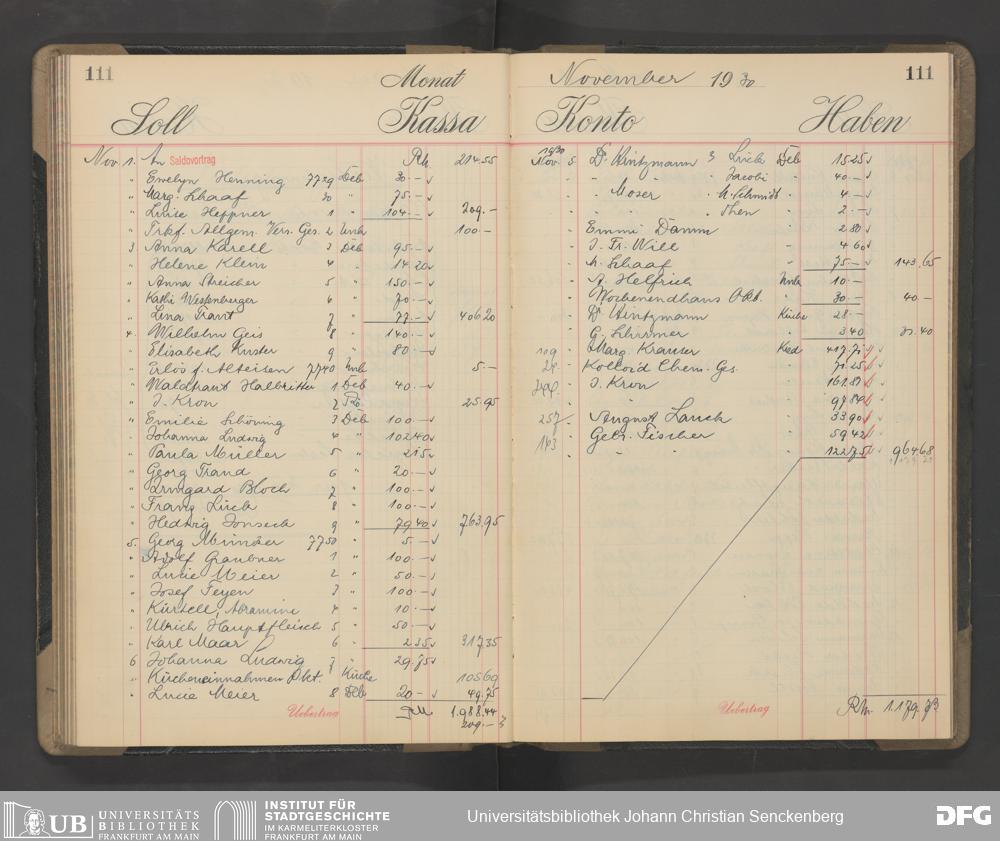 111
Monat
Soll Kassa
Nov. 1. An Saldovortrag Rm. 214.55
" Evelyn Henning 7729 Deb 30.—
" Marg. Schaaf 30 " 75.—
" Luise Heppner 1 " 104.— 209.—
" Frkf. Allgem. Vers. Ges. 2 Unk 100.—
3 Anna Karell 3 Deb 95.—
" Helene Klein 4 " 14.20
" Anna Streicher 5 " 150.—
" Käthi 6 " 70.—
" Lina 7 " 77.— 406.20
4. Wilhelm Geis 8 " 140.—
" Elisabeth Kuster 9 " 80.—
" Erlös f. Alteisen 7740 Unk 5.—
" Waldtraut Halbritter 1 Deb 40.—
" J. Kron 2 25.95
" Emilie Schöning 3 Deb 100.—
" Johanna Ludwig 4 " 102.40
" Paula Müller 5 " 2.15
" Georg Frand 6 " 20.—
" Irmgard Bloch 7 " 100.—
" Franz Lück 8 " 100.—
" Hedwig 9 " 79.40 763.95
5. Georg Münster 7750 " 5.—
" Adolf Graubner 1 " 100.—
" Lucie Meier 2 " 50.—
" Josef Feyen 3 " 100.—
" 4 " 10.—
" Ulrich Hauptfleisch 5 " 50.—
" Karl Maar 6 " 2.35 317.35
6 Johanna Ludwig 7 " 29.75
" Kücheneinnahmen Okt. Küche 105.69
" Lucie Meier 8 Deb 20.— 49.75
Uebertrag Rm. 1.988.44
209.—
111
November 1930
Konto Haben
1930
Nov. 5. Dr. Hintzmann Lück Deb 15.25
" " " Jacobi " 40.—
" " Moser " M. Schmidt " 4.—
" " " Then " 2.—
" Emmi Damm " 2.80
" J. Fr. Will " 4.60
" M. Schaaf " 75.— 143.65
" A. Helfrich Unk 10.—
" Wochenendhaus Okt. " 30.— 40.—
" Dr. Hintzmann Küche 28.—
" G. Schirmer " 3.40 31.40
109 " Marg. Krauser Kred 417.71
" Kolloid Chem. Ges. " 71.25
" J. Kron " 161.81
" " 97.84
257 " August Lauch " 33.90
163 " Gebr. Fischer " 59.42
" " " 122.75 964.68
Uebertrag Rm. 1.179.73
UB UNIVERSITÄTS
BIBLIOTHEK
FRANKFURT AM MAIN
INSTITUT FÜR
STADTGESCHICHTE
IM KARMELITERKLOSTER
FRANKFURT AM MAIN
Universitätsbibliothek Johann Christian Senckenberg
DFG